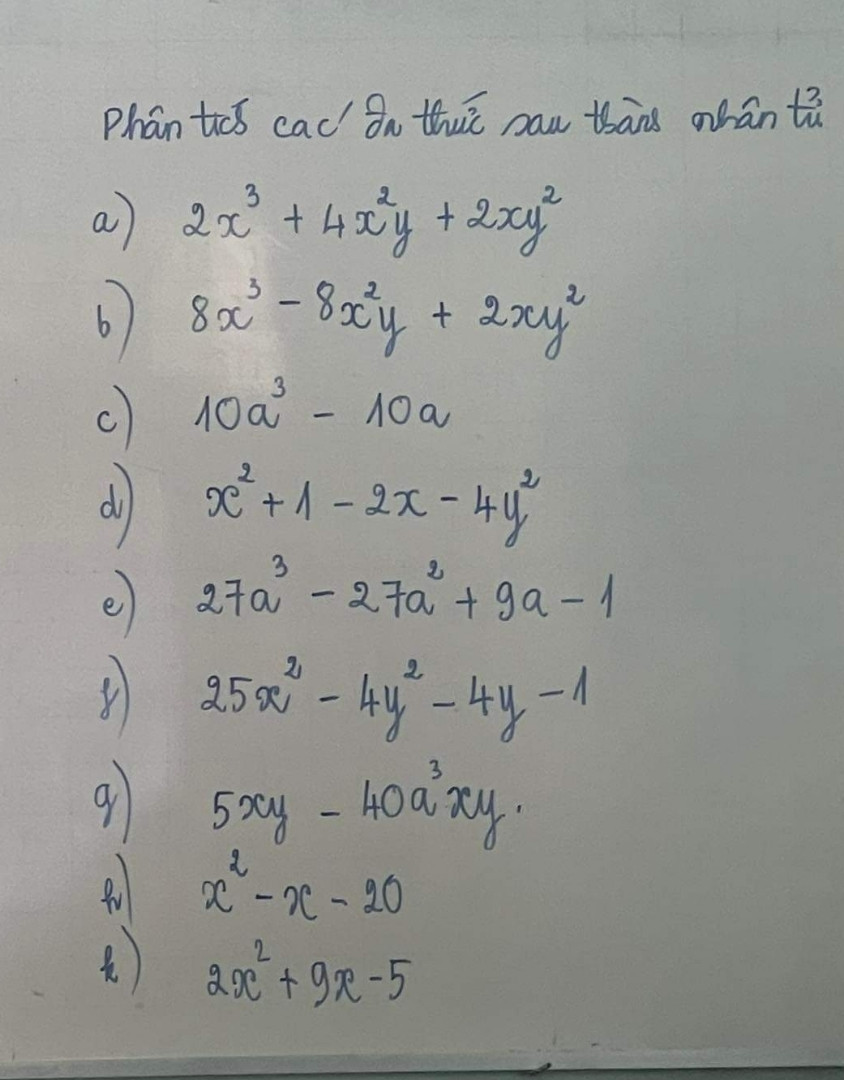 Phân tích các đa thức sau thành nhân tử
a) 2x³ + 4x²y + 2xy²
b) 8x³ - 8x²y + 2xy²
c) 10a³ - 10a
d) x² + 1 - 2x - 4y²
e) 27a³ - 27a² + 9a - 1
f) 25x² - 4y² - 4y - 1
g) 5xy - 40a³xy.
h) x² - x - 20
k) 2x² + 9x - 5